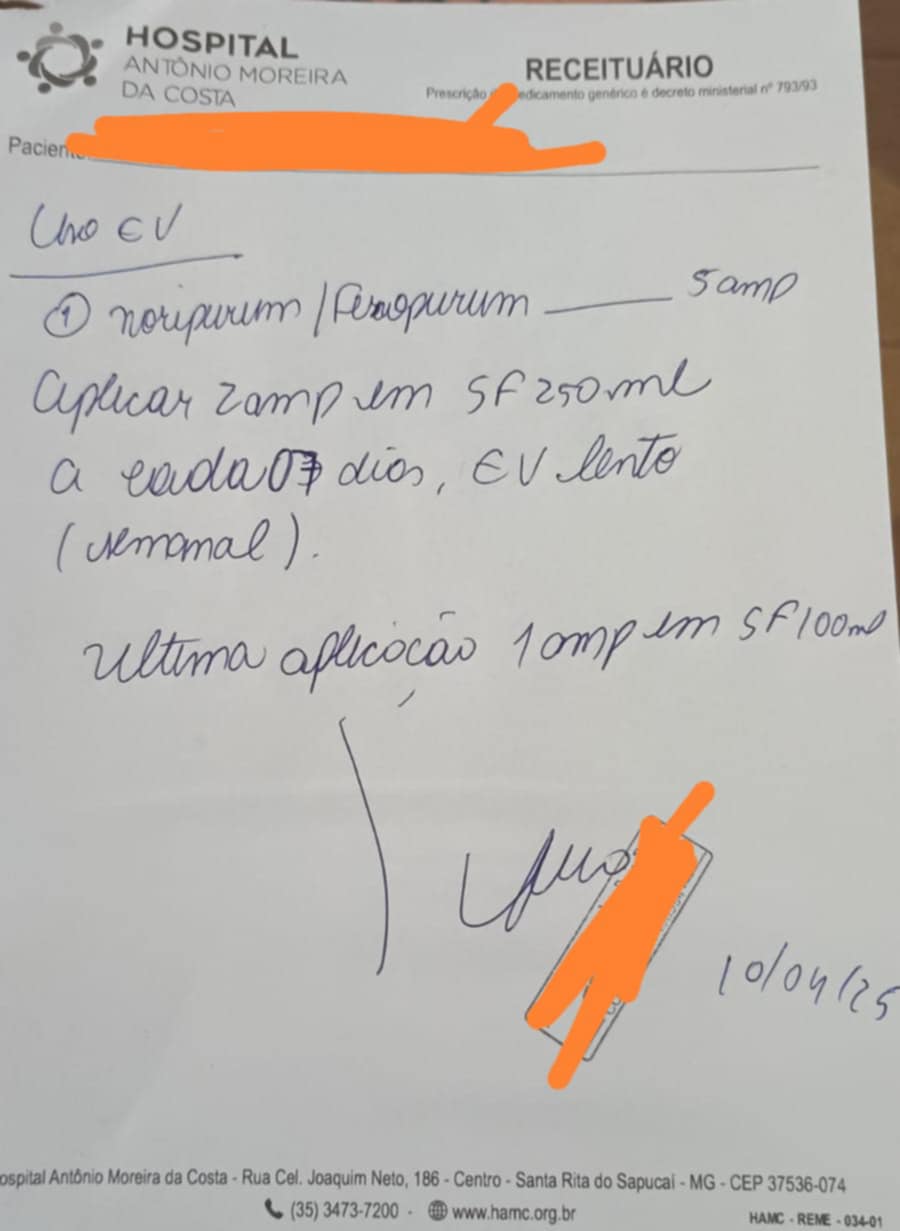 HOSPITAL
ANTÔNIO MOREIRA
DA COSTA
RECEITUÁRIO
Prescrição edicamento genérico é decreto ministerial nº 793/93
Pacien
Uso EV
① noripurum / Ferropurum ——— 5 amp
Aplicar 2 amp em SF 250 ml
a cada 07 dias, EV lento
(semanal).
Ultima aplicação 1 amp em SF 100 ml
10/04/25
ospital Antônio Moreira da Costa - Rua Cel. Joaquim Neto, 186 - Centro - Santa Rita do Sapucai - MG - CEP 37536-074
(35) 3473-7200 - www.hamc.org.br
HAMC - REME - 034-01